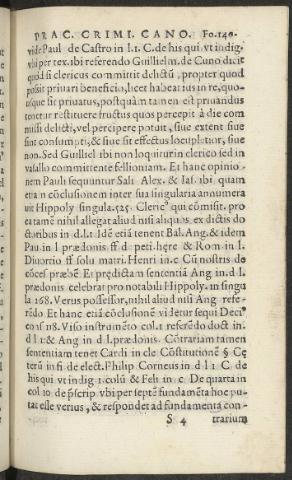 PRAC. CRIMI. CANO. Fo. 140.
vide Paul de Castro in l. 1. C. de his qui vt indig.
vbi per tex. ibi referendo Guilhelm. de Cuno dicit
quòd si clericus committit delictū, propter quod
possit priuari beneficio, licet habeat ius in re, quo-
usque sit priuatus, postquàm tamen est priuandus
tenetur restituere fructus quos percepit à die com
missi delicti, vel percipere potuit, siue extent siue
sint consumpti, & siue sit effectus locupletior, siue
non. Sed Guilliel ibi non loquitur in clerico sed in
vasallo committente fellioniam. Et hanc opinio
nem Pauli sequuntur Sali Alex. & Ias. ibi. quam
etiam in cōclusionem inter sua singularia annumera
uit Hippoly singula. 525. Cleric⁹ qui cōmisit. pro
qua tamē nihil allegat aliud nisi aliquos ex dictis do
ctoribus in d. l. 1 Idē etiā tenent Bal. Ang. & idem
Pau. in l prædonis. ff d. peti. hęre & Rom in l.
Diuortio ff solu matri. Henri in. c Cū nostris de
cōces præbē. Et prędictam sententiā Ang in. d l.
prædonis celebrat pro notabili Hippoly. in singu
la 168. Verus possessor, nihil aliud nisi Ang refe-
rēdo Et hanc etiā cōclusionē videtur sequi Deci⁹
consi 118. Viso instrumēto col. 1 referēdo doct in.
d l 1 & Ang in d l. prædonis. Cōtrariam tamen
sententiam tenet Cardi in cle Cōstitutionē § Cę
terū in fi de elect. Philip. Corneus in d l 1 C. de
his qui vt indig. 1. colū & Feli in c. De quarta in
col 10 de p̃scrip. vbi per septē fundamēta hoc pu-
tat esse verius, & respondet ad fundamenta con-
S 4 trarium